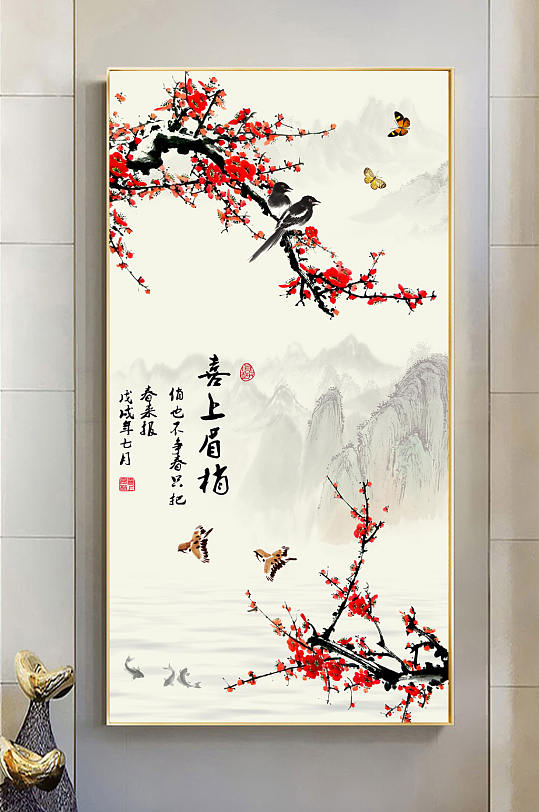 喜上眉梢
俏也不争春只把
春来报
戊戌年七月